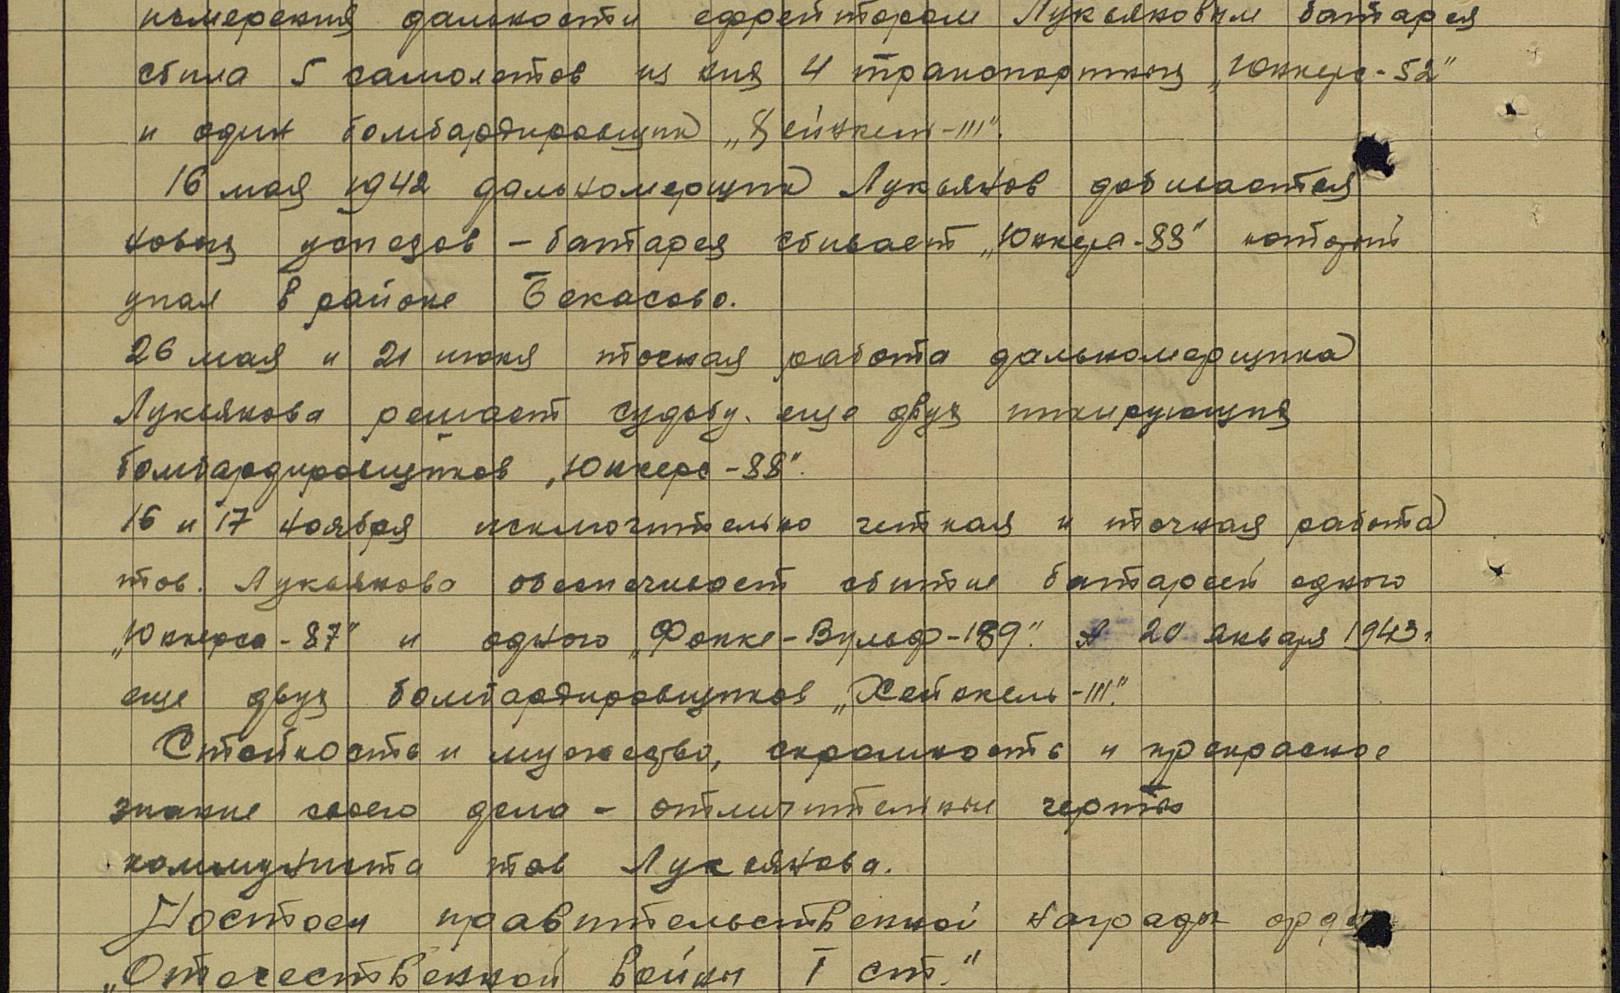 измерения дальности ефрейтором Лукьяновым батарея
сбила 5 самолетов из них 4 транспортных „Юнкерс-52"
и один бомбардировщик „Хейнкель-111".
16 мая 1942 дальномерщик Лукьянов добивается
новых успехов - батарея сбивает „Юнкерс-88" который
упал в районе Бекасово.
26 мая и 21 июня точная работа дальномерщика
Лукьянова решает судьбу еще двух пикирующих
бомбардировщиков „Юнкерс-88".
16 и 17 ноября исключительно четкая и точная работа
тов. Лукьянова обеспечивает сбитие батареей одного
„Юнкерса-87" и одного „Фокке-Вульф-189". А 20 января 1943г.
еще двух бомбардировщиков „Хейнкель-111".
Стойкость и мужество, скромность и прекрасное
знание своего дела - отличительные черты
коммуниста тов Лукьянова.
Достоен правительственной награды
„Отечественной войны I ст."